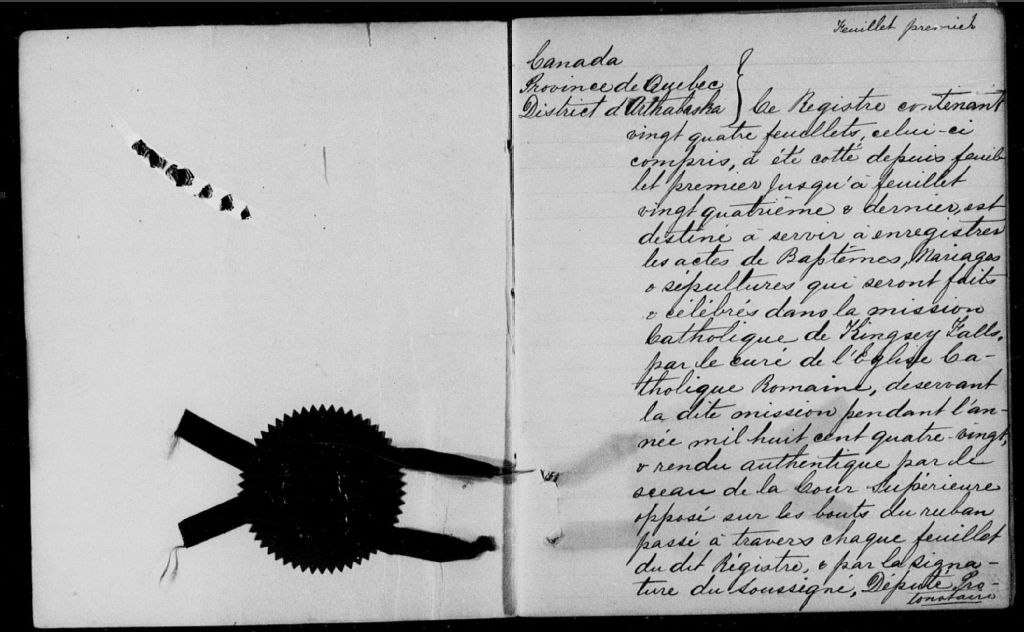 Feuillet premier
Canada
Province de Quebec
District d'Arthabaska } Ce Registre contenant
vingt quatre feuillets, celui-ci
compris, a été cotté depuis feuil-
let premier jusqu'à feuillet
vingt quatrième & dernier, est
destiné à servir à enregistrer
les actes de Baptêmes, Mariages
& sépultures qui seront faits
& célébrés dans la mission
Catholique de Kingsey Falls,
par le curé de l'Eglise Ca-
tholique Romaine, deservant
la dite mission pendant l'an-
née mil huit cent quatre-vingt,
& rendu authentique par le
sceau de la Cour Supérieure
opposé sur les bouts du ruban
passé à travers chaque feuillet
du dit Régistre, & par la signa-
ture du soussigné, Député Pro-
tonotaire